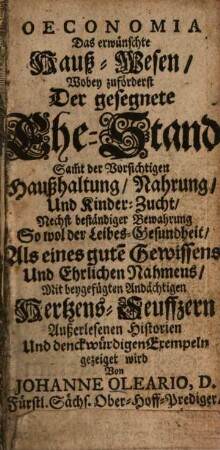 OECONOMIA
Das erwünschte
Hauß-Wesen/
Wobey zuförderst
Der gesegnete
Ehe-Stand
Samt der Vorsichtigen
Haußhaltung/ Nahrung/
Und Kinder-Zucht/
Nechst beständiger Bewahrung
So wol der Leibes-Gesundheit/
Als eines gutẽ Gewissens
Und Ehrlichen Nahmens/
Mit beygefügten Andächtigen
Hertzens-Seuffzern
Außerlesenen Historien
Und denckwürdigen Exempeln
gezeiget wird
Von
JOHANNE OLEARIO, D.
Fürstl. Sächs. Ober-Hoff-Prediger/